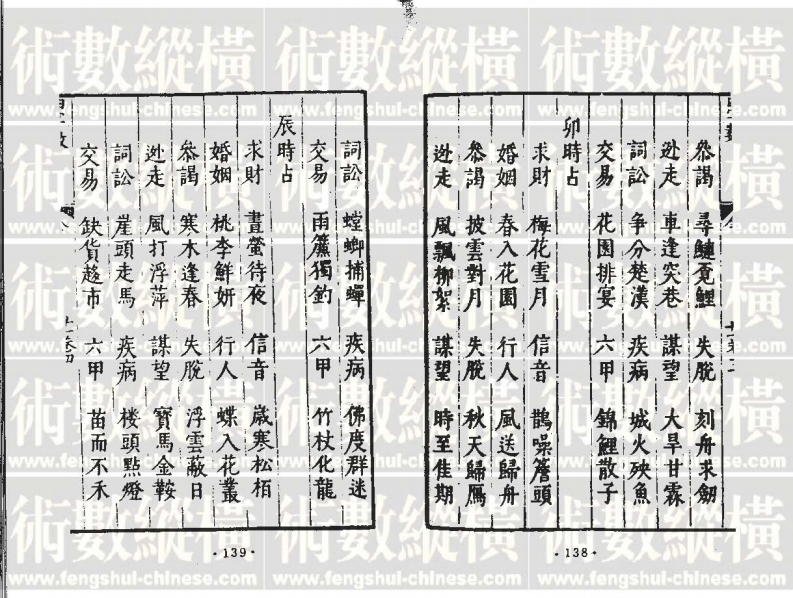 叅謁 尋鰱覓鯉 失脫 刻舟求劒
逃走 車逢突巷 謀望 大旱甘霖
詞訟 爭分楚漢 疾病 城火殃魚
交易 花園排宴 六甲 錦鯉散子
卯時占
求財 梅花雪月 信音 鵲噪簷頭
婚姻 春入花園 行人 風送歸舟
叅謁 披雲對月 失脫 秋天歸鴈
逃走 風飄柳絮 謀望 時至佳期
·138·
詞訟 螳螂捕蟬 疾病 佛度群迷
交易 雨簾獨釣 六甲 竹杖化龍
辰時占
求財 晝螢待夜 信音 歲寒松栢
婚姻 桃李鮮妍 行人 蝶入花叢
叅謁 寒木逢春 失脫 浮雲蔽日
逃走 風打浮萍 謀望 寶馬金鞍
詞訟 崖頭走馬 疾病 楼頭點燈
交易 缺貨趂市 六甲 苗而不禾
·139·
術數縱橫
www.fengshui-chinese.com